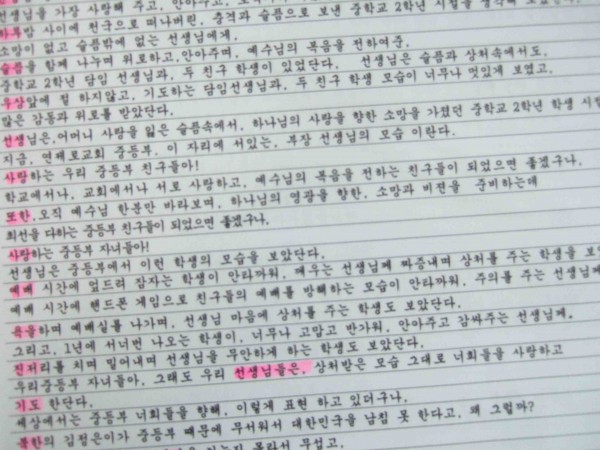 선생님을 가장 사랑해 주고, 안아주고,
하룻밤 사이에 천국으로 떠나버린, 충격과 슬픔으로 보낸 중학교 2학년 시절을
소망이 없고 슬픔밖에 없는 선생님에게,
슬픔을 함께 나누며 위로하고, 안아주며, 예수님의 복음을 전하여준,
중학교 2학년 담임 선생님과, 두 친구 학생이 있었단다. 선생님은 슬픔과 상처속에서도,
우상앞에 절 하지않고, 기도하는 담임선생님과, 두 친구 학생 모습이 너무나 멋있게 보였고,
많은 감동과 위로를 받았단다.
선생님은, 어머니 사랑을 잃은 슬픔속에서, 하나님의 사랑을 향한 소망을 가졌던 중학교 2학년 학생 시절
지금, 연제로교회 중등부, 이 자리에 서있는, 부장 선생님의 모습 이란다.
사랑하는 우리 중등부 친구들아!
학교에서나, 교회에서나 서로 사랑하고, 예수님의 복음을 전하는 친구들이 되었으면 좋겠구나,
또한, 오직 예수님 한분만 바라보며, 하나님의 영광을 향한, 소망과 비젼을 준비하는데
최선을 다하는 중등부 친구들이 되었으면 좋겠구나,
사랑하는 중등부 자녀들아!
선생님은 중등부에서 이런 학생의 모습을 보았단다.
예배 시간에 엎드려 잠자는 학생이 안타까워, 깨우는 선생님께 짜증내며 상처를 주는 학생을 보
예배 시간에 핸드폰 게임으로 친구들의 예배를 방해하는 모습이 안타까워, 주의를 주는 선생님께
욕을하며 예배실를 나가며, 선생님 마음에 상처를 주는 학생도 보았단다.
그리고, 1년에 서너번 나오는 학생이, 너무나 고맙고 반가워, 안아주고 감싸주는 선생님께,
진저리를 치며 밀어내며 선생님을 무안하게 하는 학생도 보았단다.
우리중등부 자녀들아, 그래도 우리 선생님들은, 상처받은 모습 그대로 너희들을 사랑하고
기도 한단다.
세상에서는 중등부 너희들을 향해, 이렇게 표현 하고 있더구나,
북한의 김정은이가 중등부 때문에 무서워서 대한민국을 남침 못 한다고, 왜 그럴까?
몰라서 무섭고,